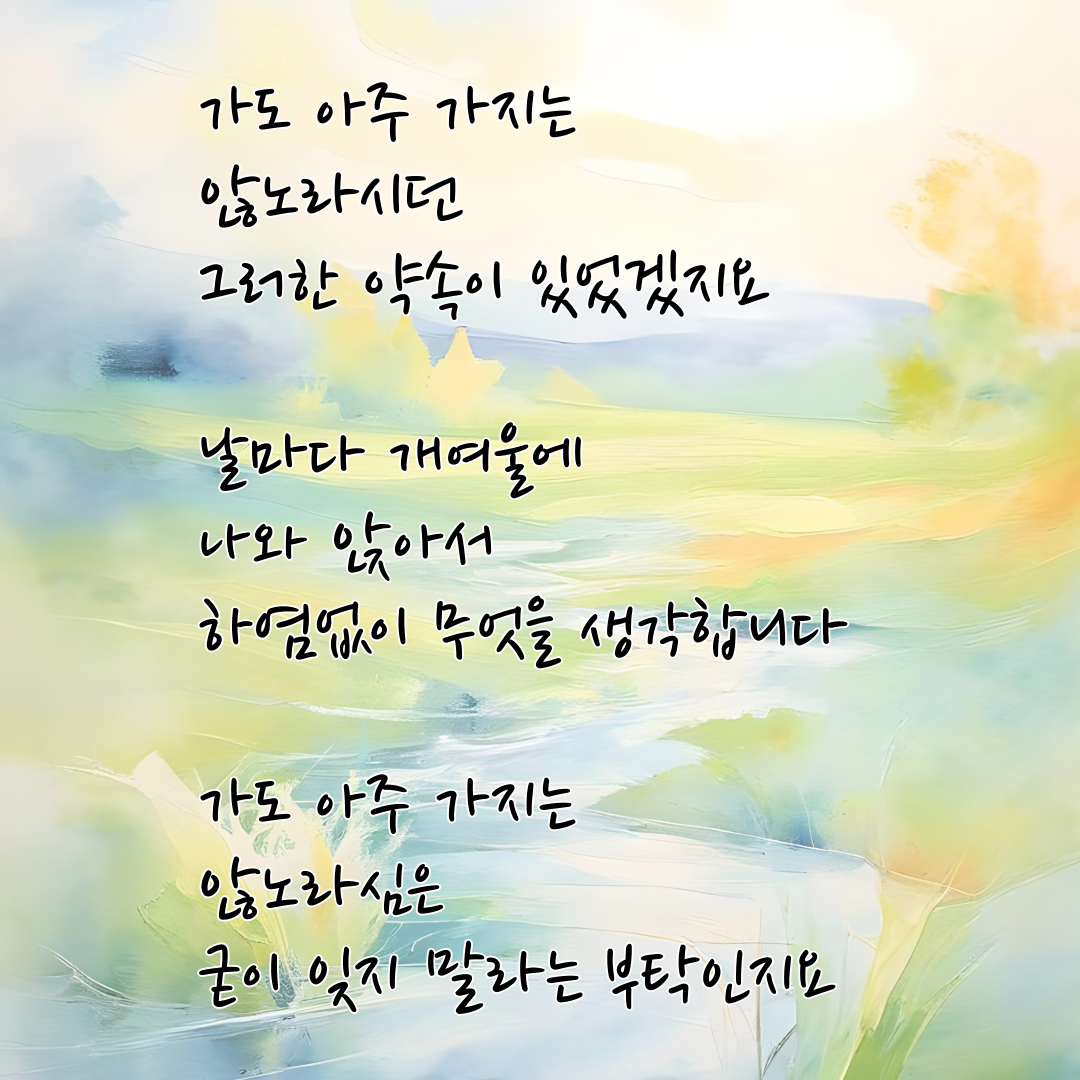 가도 아주 가지는
않노라시던
그러한 약속이 있었겠지요
날마다 개여울에
나와 앉아서
하염없이 무엇을 생각합니다
가도 아주 가지는
않노라심은
굳이 잊지 말라는 부탁인지요